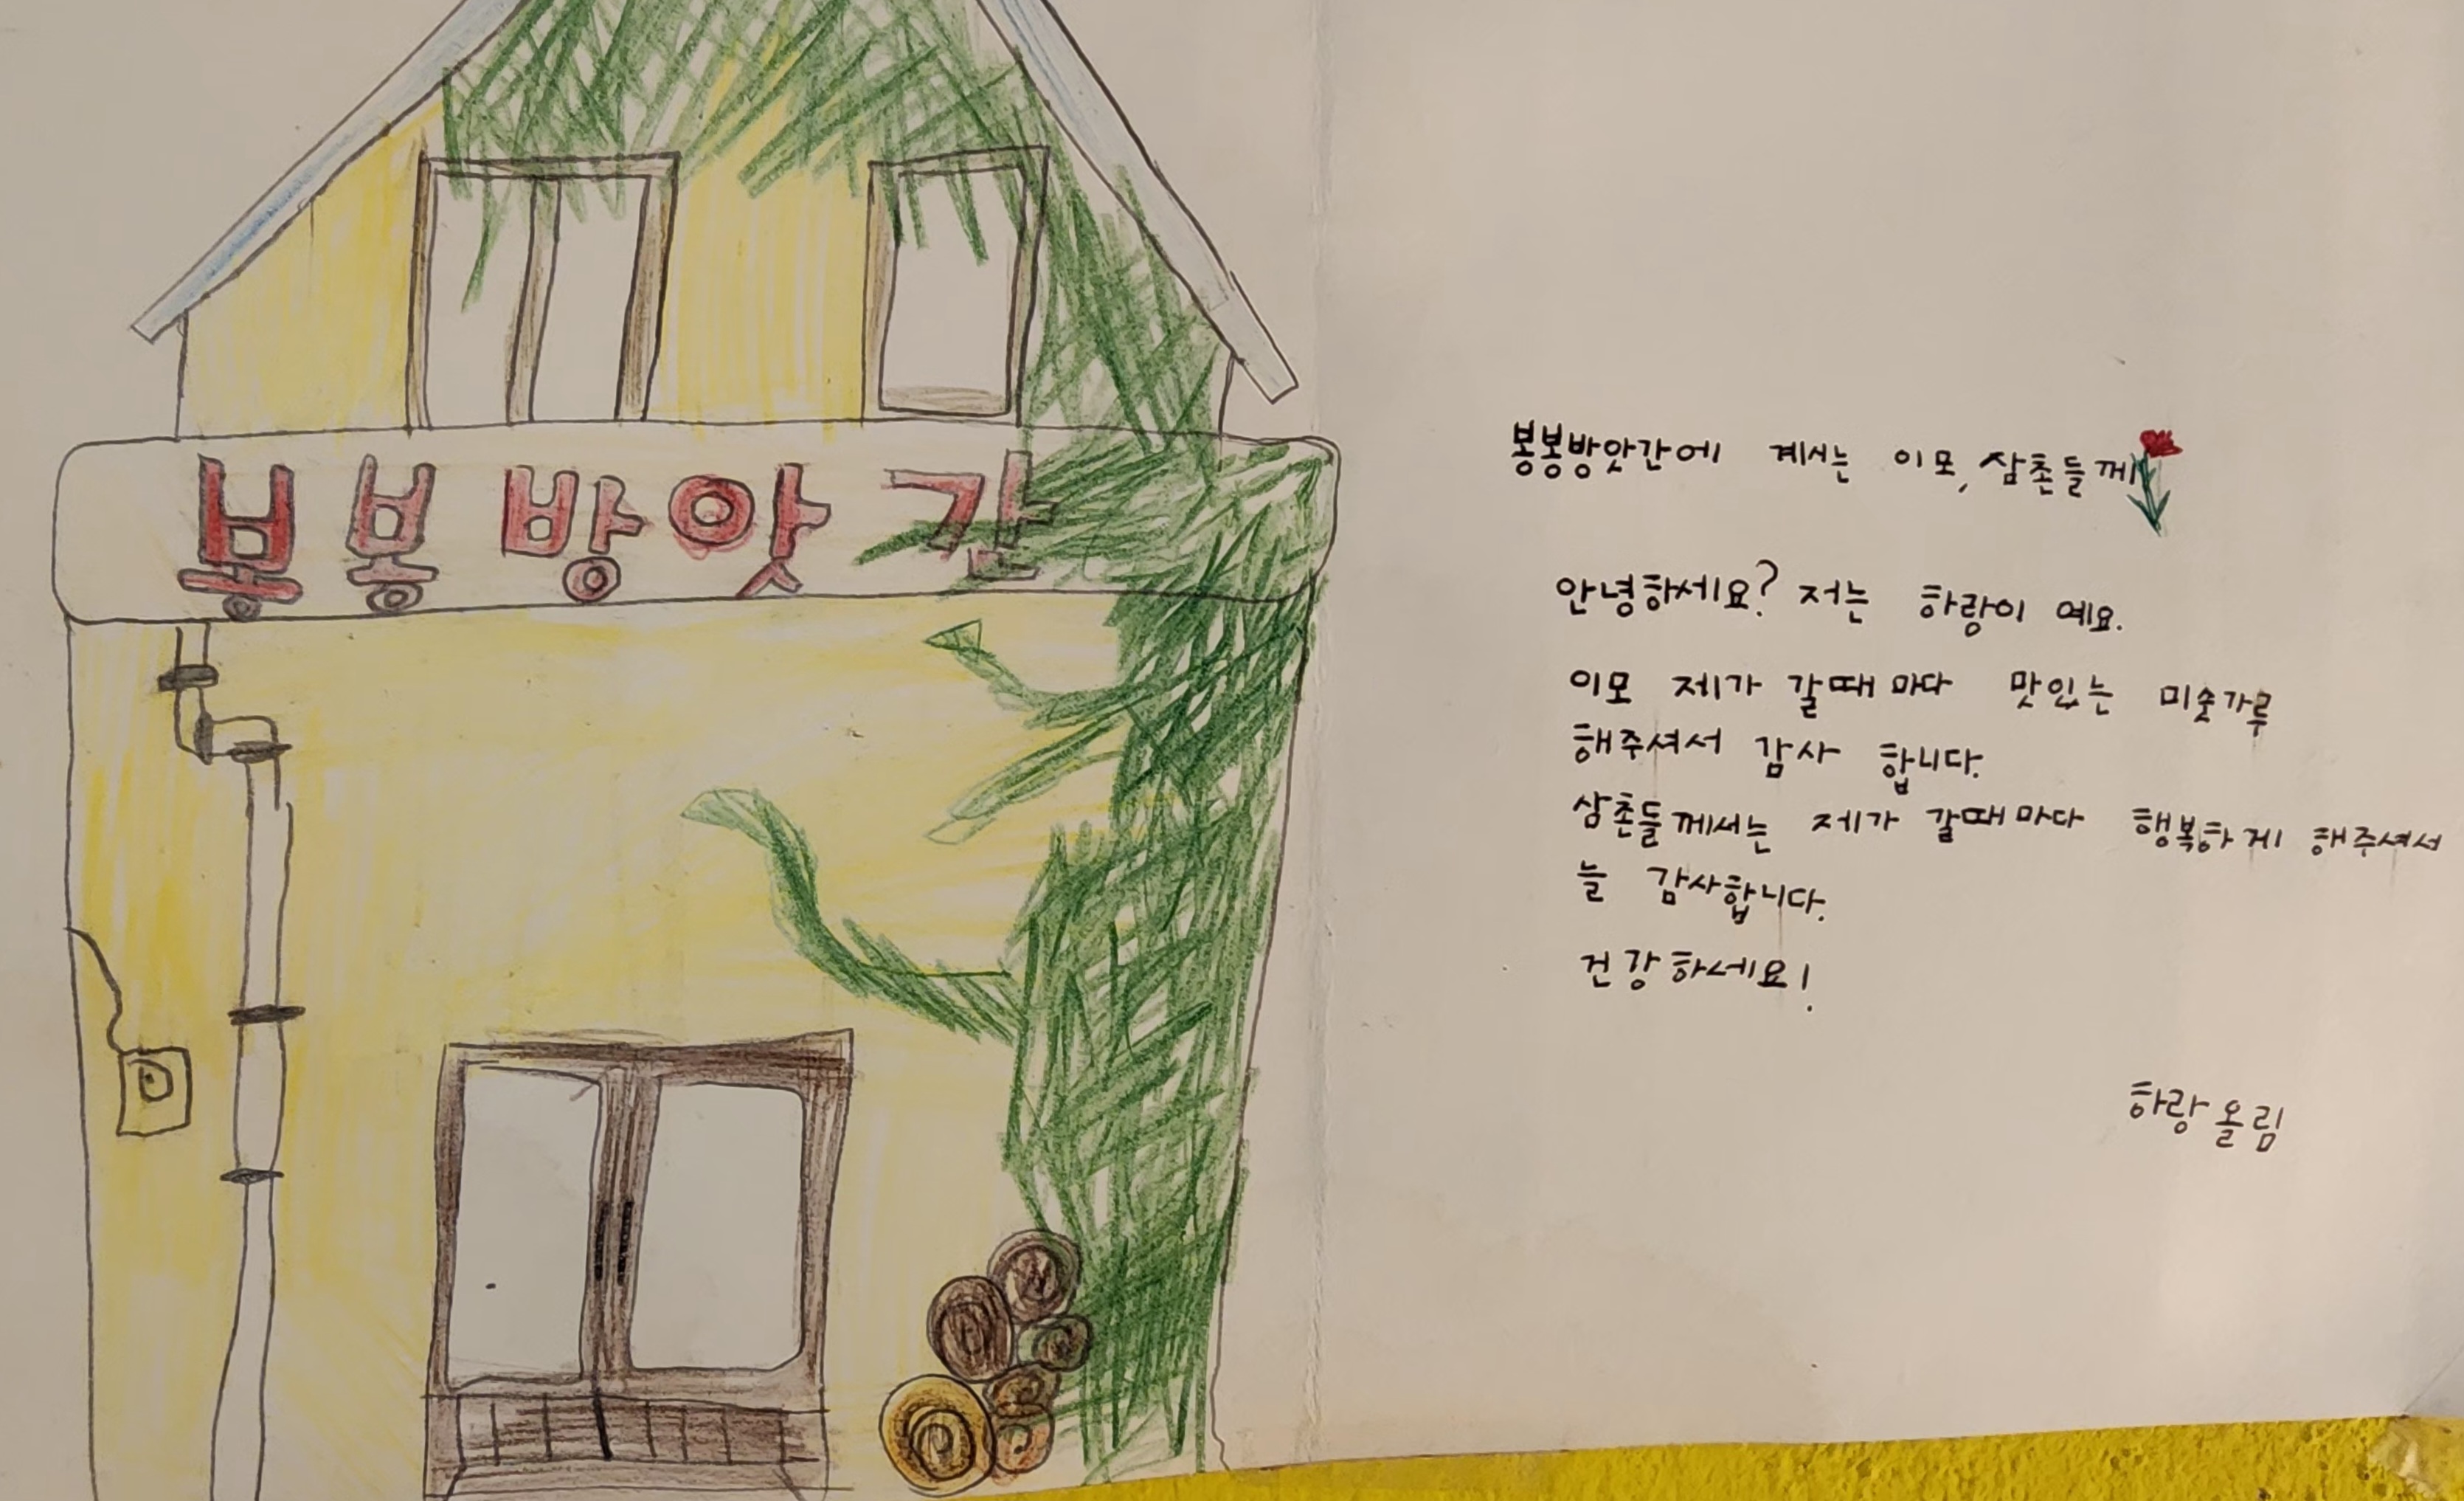 봉봉방앗간
봉봉방앗간에 계시는 이모, 삼촌들께
안녕하세요? 저는 하랑이 예요.
이모 제가 갈때 마다 맛있는 미숫가루
해주셔서 감사 합니다.
삼촌들께서는 제가 갈때 마다 행복하게 해주셔서
늘 감사합니다.
건강하세요!
하랑 올림